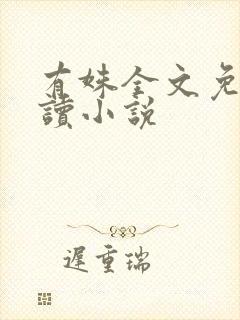 有妹全文免
讀小説
遲重瑞